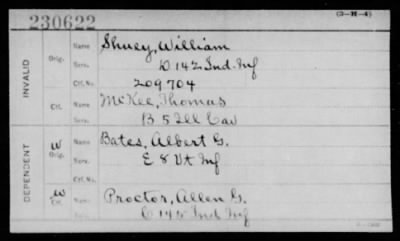 230622
(3-H-4)
INVALID
Orig. Name Shuey, William
Serv. D 142 Ind. Inf
Ctf. No. 209704
Ctf. Name McKee, Thomas
B 5 Ill Cav
DEPENDENT
W Orig. Name Bates, Albert G.
Serv. E 8 Vt Inf
Ctf. No.
W Ctf. Name Proctor, Allen G.
C 145 Ind Inf